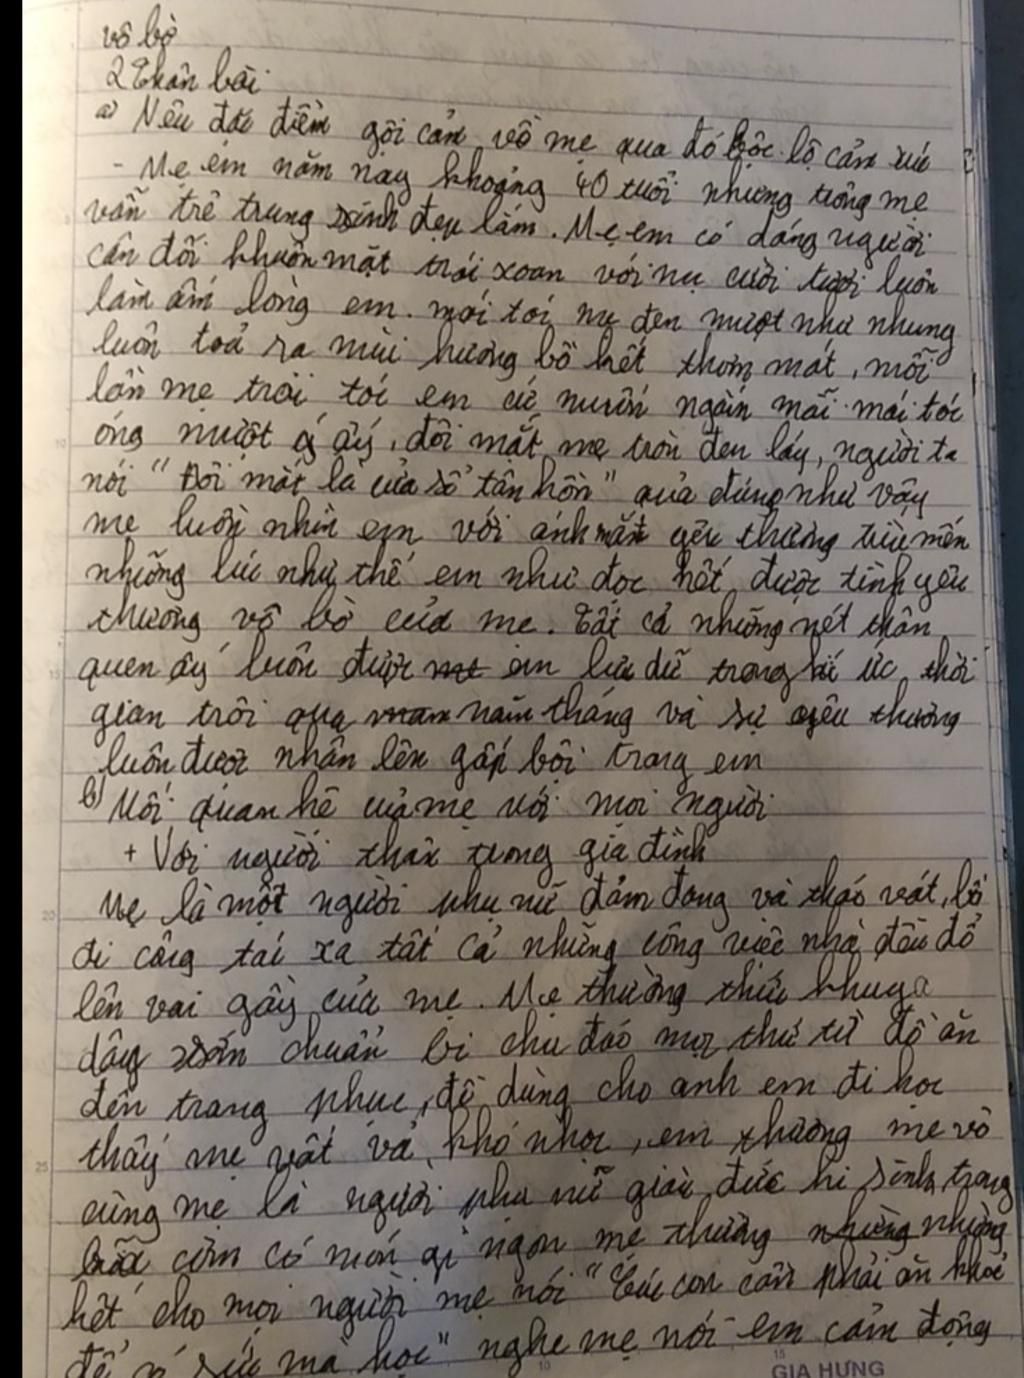 vô bờ
2 Thân bài
a) Nêu đặc điểm gợi cảm về mẹ qua đó bộc lộ cảm xúc
- Mẹ em năm nay khoảng 40 tuổi nhưng trông mẹ
vẫn trẻ trung xinh đẹp lắm. Mẹ em có dáng người
cân đối khuôn mặt trái xoan với nụ cười tươi luôn
làm ấm lòng em. mái tóc mẹ đen mượt như nhung
luôn toả ra mùi hương bồ kết thơm mát, mỗi
lần mẹ trải tóc em cứ muốn ngắm mãi mái tóc
óng mượt ấy, đôi mắt mẹ tròn đen láy, người ta
nói "Đôi mắt là cửa sổ tâm hồn" quả đúng như vậy
mẹ luôn nhìn em với ánh mắt yêu thương trìu mến
những lúc như thế em như đọc hết được tình yêu
thương vô bờ của mẹ. Tất cả những nét thân
quen ấy luôn được em lưu dữ trong kí ức thời
gian trôi qua năm tháng và sự yêu thương
luôn được nhân lên gấp bội trong em
b) Mối quan hệ của mẹ với mọi người
+ Với người thân trong gia đình
Mẹ là một người phụ nữ đảm đang và tháo vát, bố
đi công tác xa tất cả những công việc nhà đều đổ
lên vai gầy của mẹ. Mẹ thường thức khuya
dậy sớm chuẩn bị chu đáo mọi thứ từ đồ ăn
đến trang phục, đồ dùng cho anh em đi học
thấy mẹ vất vả, khó nhọc, em thương mẹ vô
cùng mẹ là người phụ nữ giàu đức hi sinh, trong
bữa cơm có món gì ngon mẹ thường nhường
hết cho mọi người mẹ nói "Các con cần phải ăn khoẻ
để có sức mà học" nghe mẹ nói em cảm động
GIA HƯNG